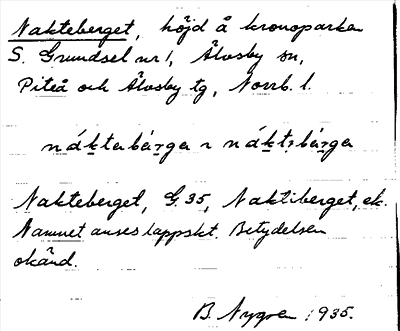 Nakteberget, höjd å kronoparken
S. Grundsel nr 1, Älvsby sn,
Piteå och Älvsby tg, Norrb. l.
náktebárga ~ náktibárga
Nakteberget, G. 35, Naktiberget, ek.
Namnet anses lappskt. Betydelsen
okänd.
B. Nygren 1935.